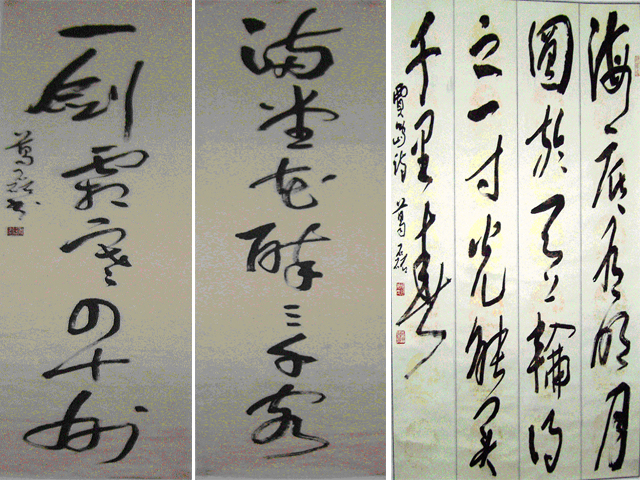 海底有明月
圓於天上輪得
之一寸光能买
千里春
賈岛诗 葛磊
满堂花醉三千客
一剑霜寒四十州
葛磊书